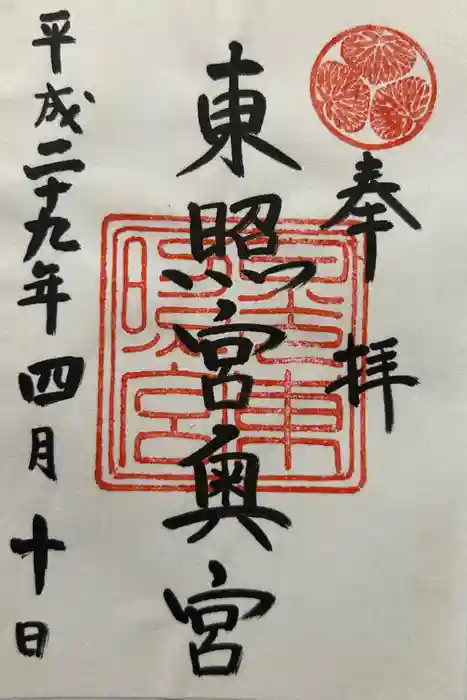 奉拝
東照宮奥宮
平成二十九年四月十日